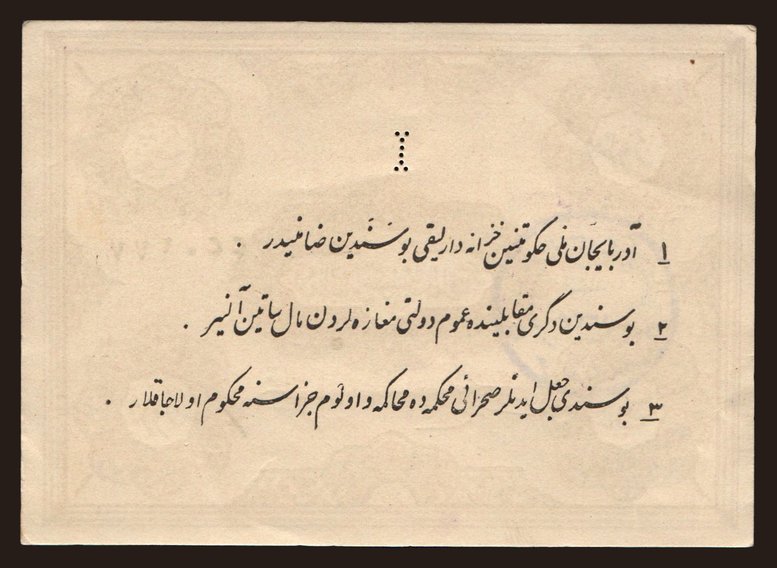 I
۱ آذربایجان ملی حکومتنین خزانه دارلیقی بو سَنَدین ضامنیدر .
۲ بو سندین دگری مقابلینده عموم دولتی مغازه لردن مال ساتین آلنیر .
۳ بو سندی جعل ایدنلر صحرائی محکمه ده محاکمه و اولوم جزاسنه محکوم اولاجاقلار .